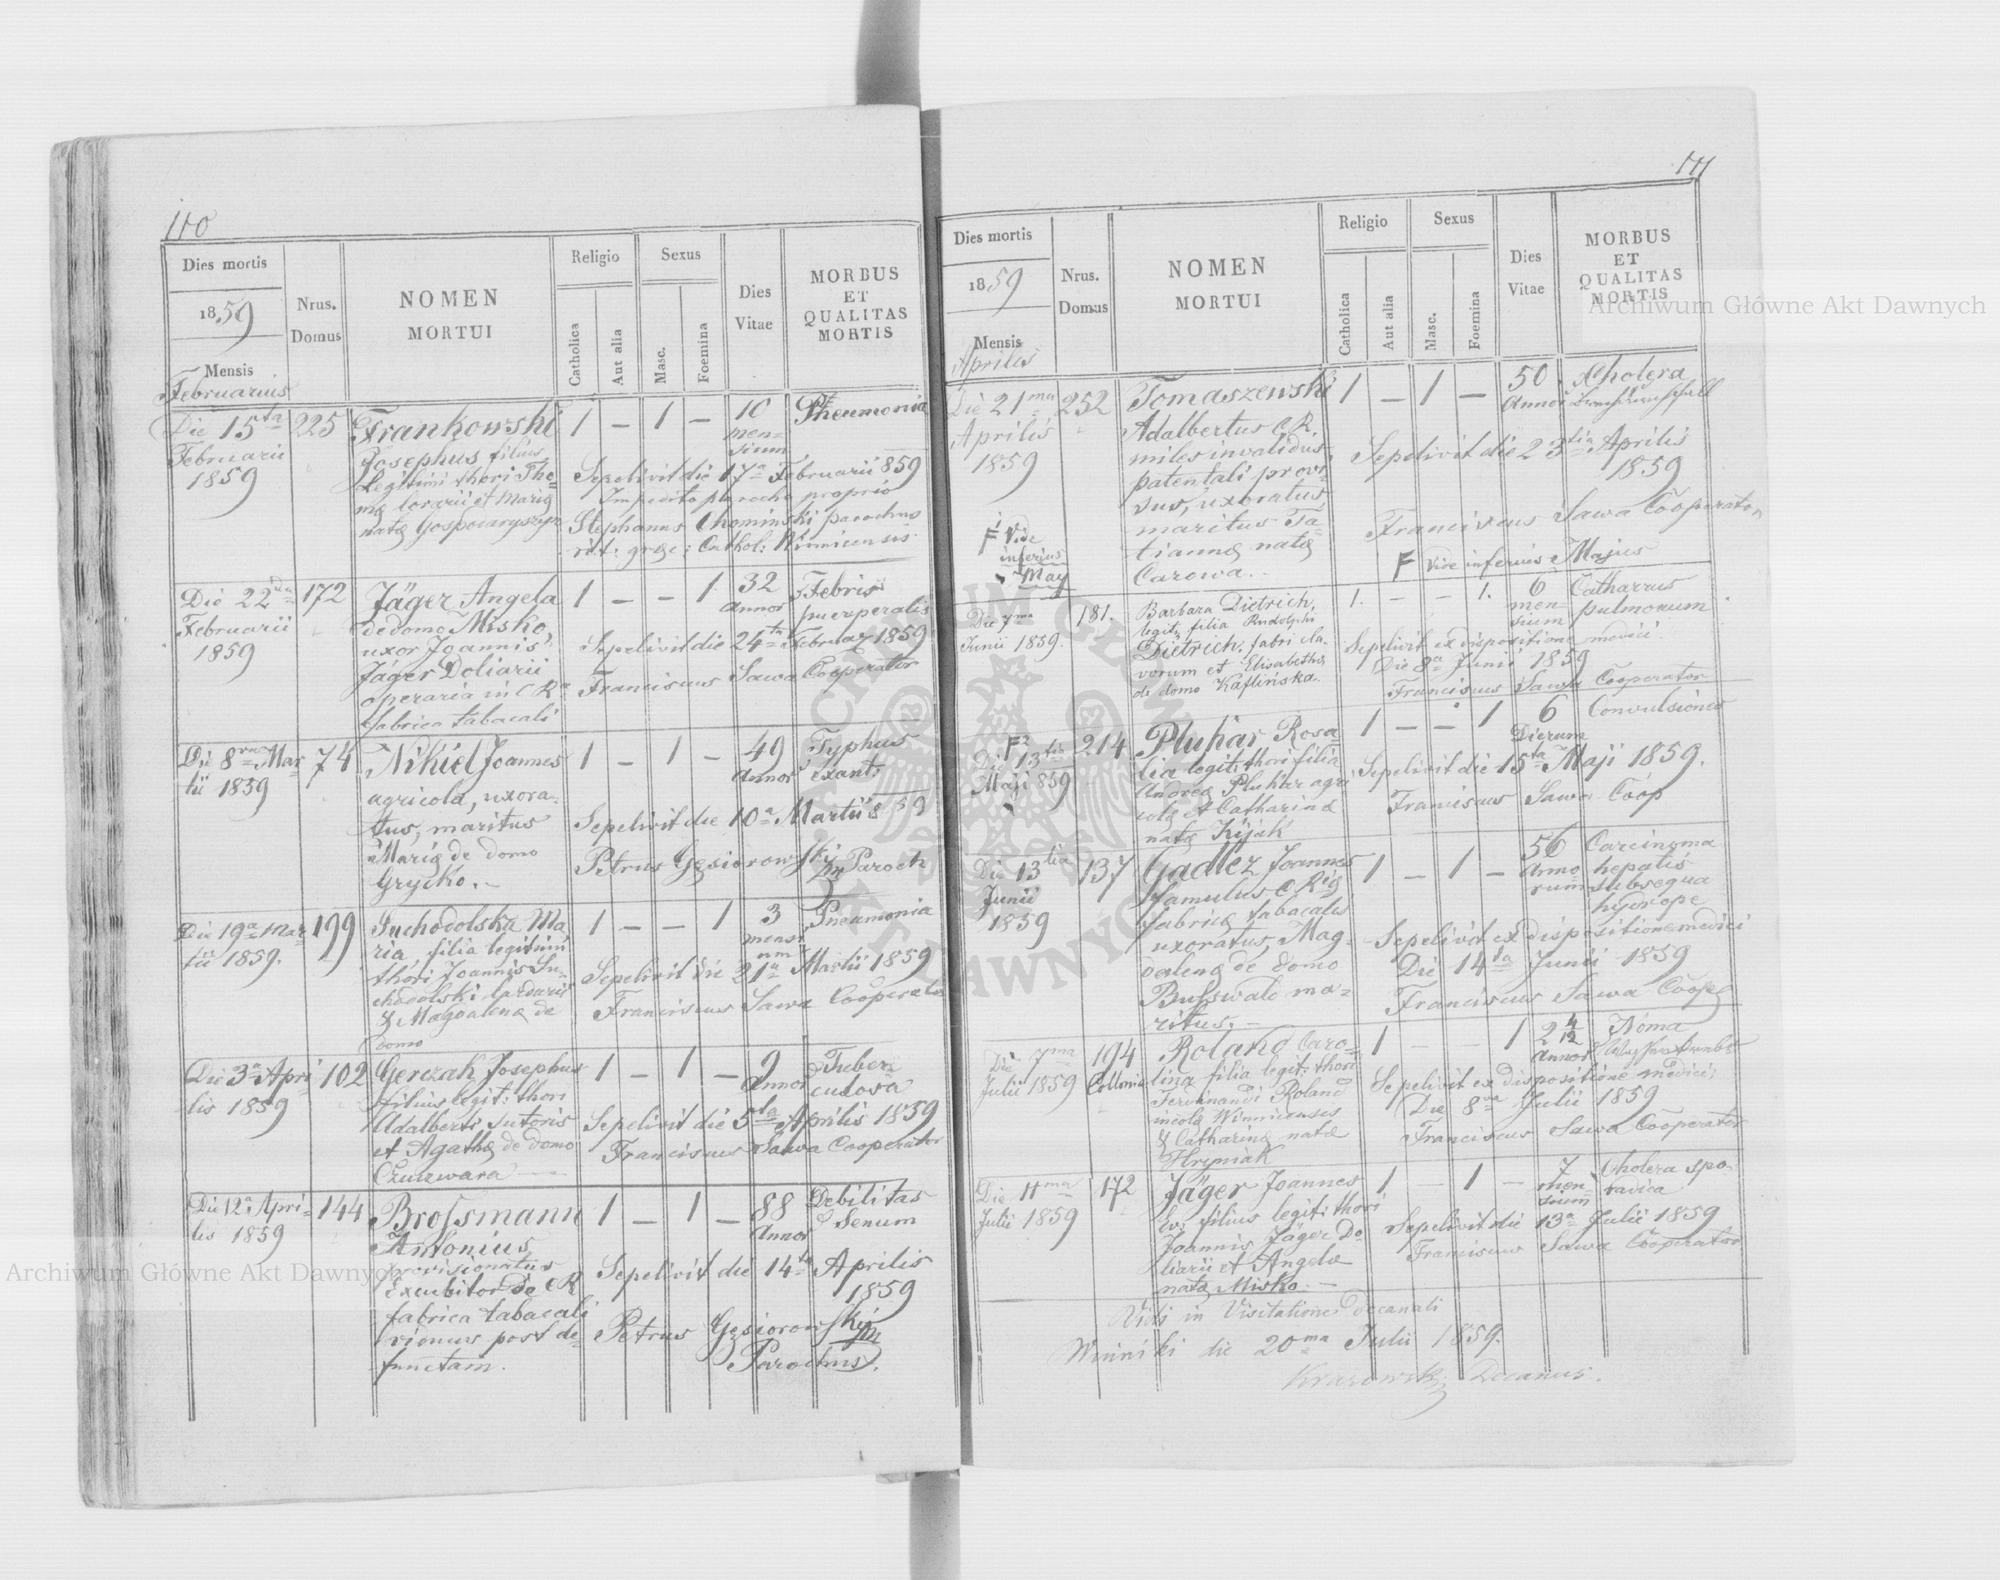 110
Dies mortis
1859
Mensis
Februarius
Nrus.
Domus
NOMEN
MORTUI
Religio
Catholica
Aut alia
Sexus
Masc.
Foemina
Dies
Vitae
MORBUS
ET
QUALITAS
MORTIS
Die 15ta
Februarii
1859
225
Frankowski
Josephus filius
Legitimi thori Tho-
mę lorarii et Marię
natę
1 – 1 –
10
men-
sium
Pneumonia
Sepelivit die 17a Februarii 859
Impedito parocho proprio
Stephanus Chominski parochus
rit: gręc: Cathol: Winnicensis
Die 22da
Februarii
1859
172
Jäger Angela
de domo Misko,
uxor Joannis
Jäger Doliarii
operaria in C Ra
fabrica tabacali
1 – – 1
32
Annor
Febris
puerperalis
Sepelivit die 24ta Februar 1859
Franciscus Sawa Cooperator
Die 8va Mar
tii 1859
74
Nikiel Joannes
agricola, uxora-
tus, maritus
Marię de domo
Grycko.
1 – 1 –
49
Annor
Typhus
exant:
Sepelivit die 10a Martii 859
Petrus Gęsiorowski
mp Paroch
Die 19a Mar
tii 1859.
199
Suchodolska Ma
ria, filia legitimi
thori Joannis Su-
chodolski
& Magdalenę de
domo
1 – – 1
3
mensi
um
Pneumonia
Sepelivit die 21a Martii 1859
Franciscus Sawa Cooperator
Die 3a Apri
lis 1859
102
Gerczak Josephus
filius legit: thori
Adalberti sutoris
et Agathę de domo
Czuczwara
1 – 1 –
9
Annor
Tuber
culosa
Sepelivit die 5ta Aprilis 1859
Franciscus Sawa Cooperator
Die 12a Apri-
lis 1859
144
Brossmann
Antonius
provisionatus
Excubitor de CR
fabrica tabacali
viennis post de-
functam.
1 – 1 –
88
Annor
Debilitas
Senum
Sepelivit die 14ta Aprilis
1859
Petrus Gęsiorowski
mp
Parochus.
111
Dies mortis
1859
Mensis
Aprilis
Nrus.
Domus
NOMEN
MORTUI
Religio
Catholica
Aut alia
Sexus
Masc.
Foemina
Dies
Vitae
MORBUS
ET
QUALITAS
MORTIS
Die 21ma
Aprilis
1859
252
Tomaszewski
Adalbertus C.R.
miles invalidus
patentali provi
sus, uxoratus
maritus Ta-
tiannę natę
Carowa.
1 – 1 –
50
Annor
Cholera
Sepelivit die 23tia Aprilis
1859
Franciscus Sawa Cooperator
F Vide inferius Majus
F Vide
inferius
May
Die 7ma
Junii 1859.
181.
Barbara Dietrich,
legit, filia Rudolphi
Dietrich, fabri cla
vorum et Elisabethę
de domo Kaflińska.
1. – – 1.
6
men-
sium
Catharrus
pulmonum
Sepelivit ex dispositione medici
Die 8a Junii 1859
Franciscus Sawa Cooperator
F2
Die 13tia
Maji 859
214
Pluhar Rosa
lia legit: thori filia
Andreę Pluhar agri
colę et Catharinę
natę Kijak
1 – – 1
6
Dierum
Convulsiones
Sepelivit die 15ta Maji 1859.
Franciscus Sawa Coop
Die 13tia
Junii
1859
137
Gadlez Joannes
famulus C Rię
fabricę tabacalis
uxoratus, Mag-
dalenę de domo
Busswald ma-
ritus.
1 – 1 –
56
Anno
rum
Carcinoma
hepatis
subsequa
hydrope
Sepelivit ex dispositione medici
Die 14ta Junii 1859
Franciscus Sawa Coop
Die 7ma
Julii 1859
194
Collonia
Roland Caro-
lina filia legit: thori
Ferdinandi Roland
incolę Winnicensis
& Catharinę natę
Hryniak
1 – – 1
2 4/12
Annor
Noma
Sepelivit ex dispositione medici
Die 8va Julii 1859
Franciscus Sawa Cooperator
Die 11ma
Julii 1859
172
Jäger Joannes
filius legit: thori
Joannis Jäger Do
liarii et Angelę
natę Misko
1 – 1 –
7
men-
sium
Cholera spo-
radica
Sepelivit die 13a Julii 1859
Franciscus Sawa Cooperator
Vidi in Visitatione decanali
Winniki die 20ma Julii 1859.
Decanus.
Archiwum Główne Akt Dawnych
Archiwum Główne Akt Dawnych
ARCHIWUM GŁÓWNE AKT DAWNYCH